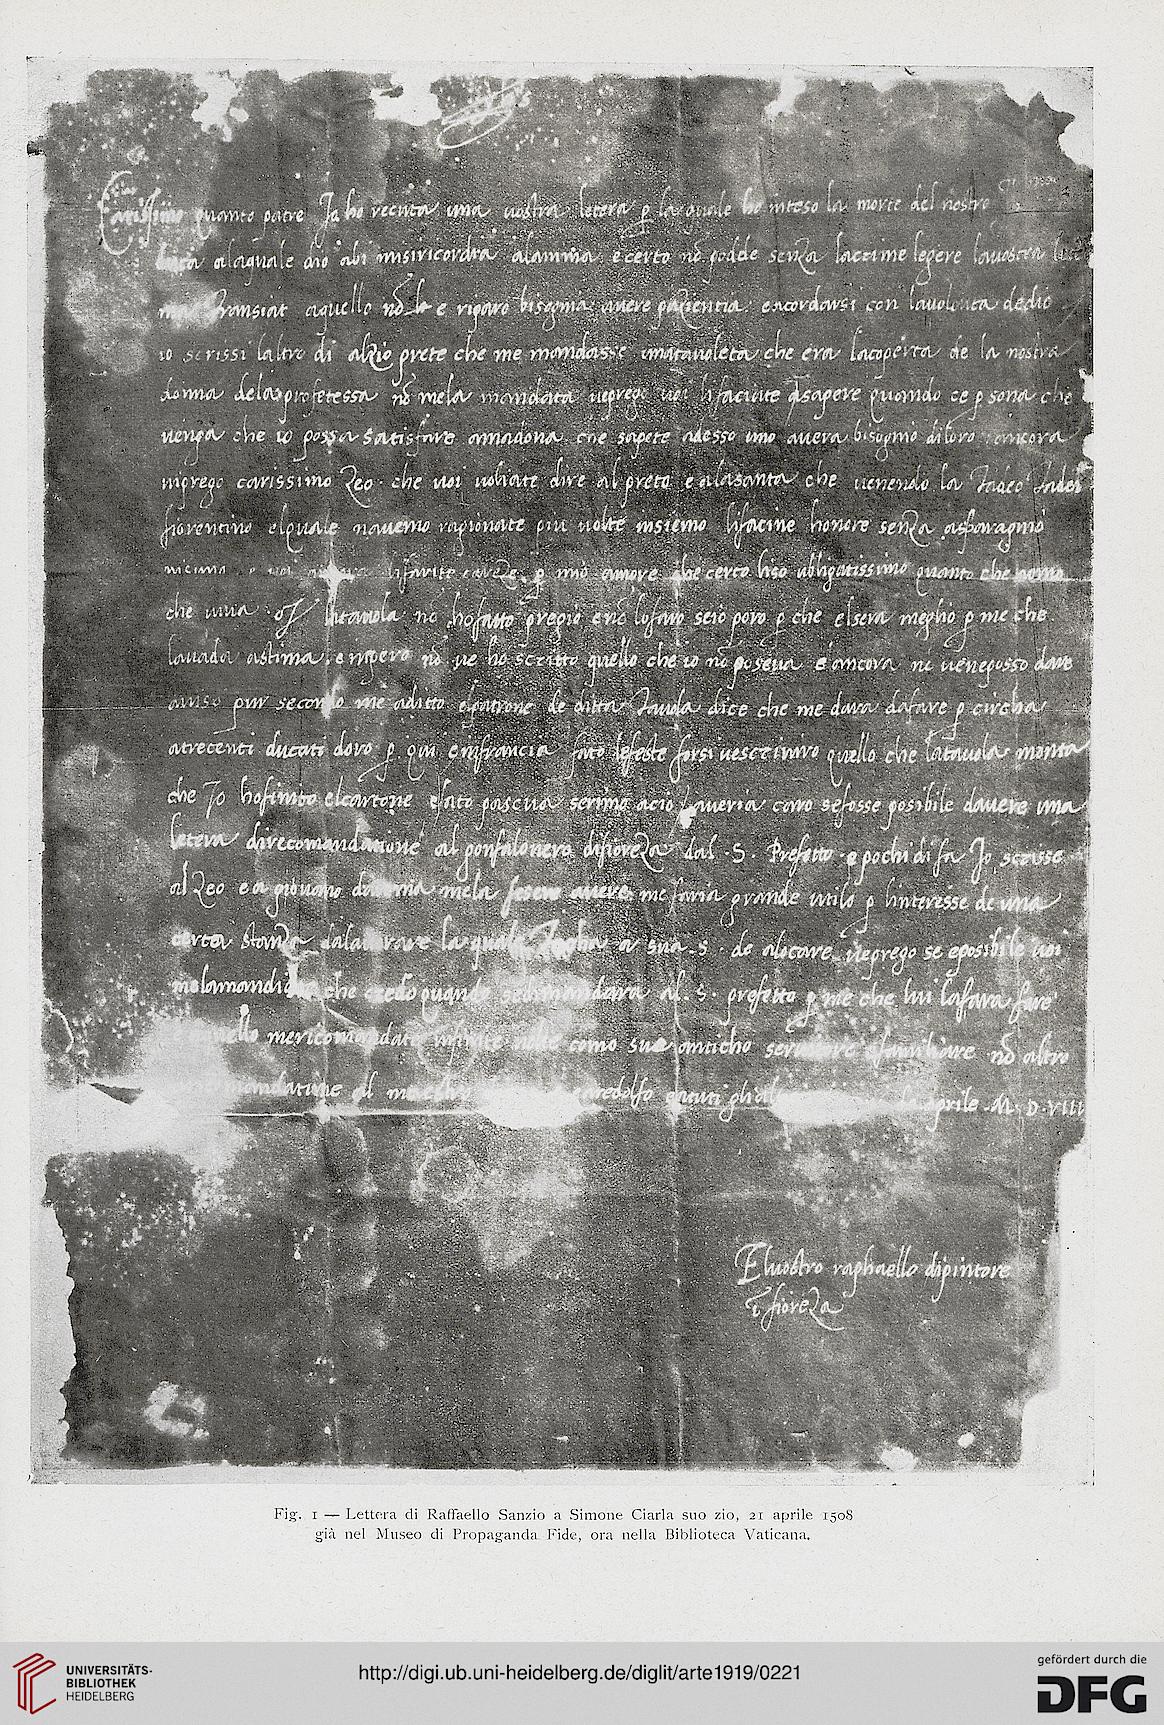 Carissimo quanto patre Jo ho receuta una vostra letera p la quale ho inteso la morte del nostro
duca alaquale dio abi misiricordia alanima e certo nō podde senza lacrime legere la vostra
transiat aquello nō le e riparo bisogna avere pazientia e acordarsi con la volonta de dio
io scrissi laltro di alzio prete che me mandasse una tavoleta che era la coperta de la nostra
donna dela profetessa nō mela mandata ve prego voi li faciate asapere quando ce p sona che
venga che io possa satisfare amadona che sapete adesso uno avera bisogno di loro ancora
vi prego carissimo Zeo che voi voliate dire al preto e ala santa che venendo la Tadeo Tadei
fiorentino el quale navemo ragionate piu volte insiemo li facine honore senza asparagnio
voi li farite careze p mio amore che certo li so ubligatissimo quanto che
che viva la tavola nō ho fatto pregio e nō lo faro se io poro p che el sera meglio p me che
la vada a stima e nō ve ho scritto quello che io nō poseva e ancora nō ve ne posso dare
aviso pur secondo me a ditto el patrone de ditta Tavola dice che me dara da fare p circha
a trecenti ducati doro p qui e in francia fato le feste forsi ve scrivero quello che la tavola monta
che Jo ho finito el cartone e fato pascua serimo a cio averia caro se fosse posibile davere una
letera di recomandatione al gonfalonero di fiorenza dal .S. Prefetto e pochi di fa Jo scrisse
al Zeo e a giovano da roma me la fesero avere me faria grande utilo p linteresse de una
certa stanza da lavorare la quale a sua .S. de alocare ve prego se e posibile voi
me la mandiate che credo quando se dimandara al .S. prefetto p me che lui la fara fare
e a quello me ricomandate infinite volte como suo anticho servitore e familiare nō altro
al maestro redolfo e a tuti gli altri aprile .M.D.VIII
El vostro raphaello dipintore
ī fiorenza
Fig. 1 — Lettera di Raffaello Sanzio a Simone Ciarla suo zio, 21 aprile 1508
già nel Museo di Propaganda Fide, ora nella Biblioteca Vaticana.
UNIVERSITÄTS-
BIBLIOTHEK
HEIDELBERG
http://digi.ub.uni-heidelberg.de/diglit/arte1919/0221
gefördert durch die
DFG